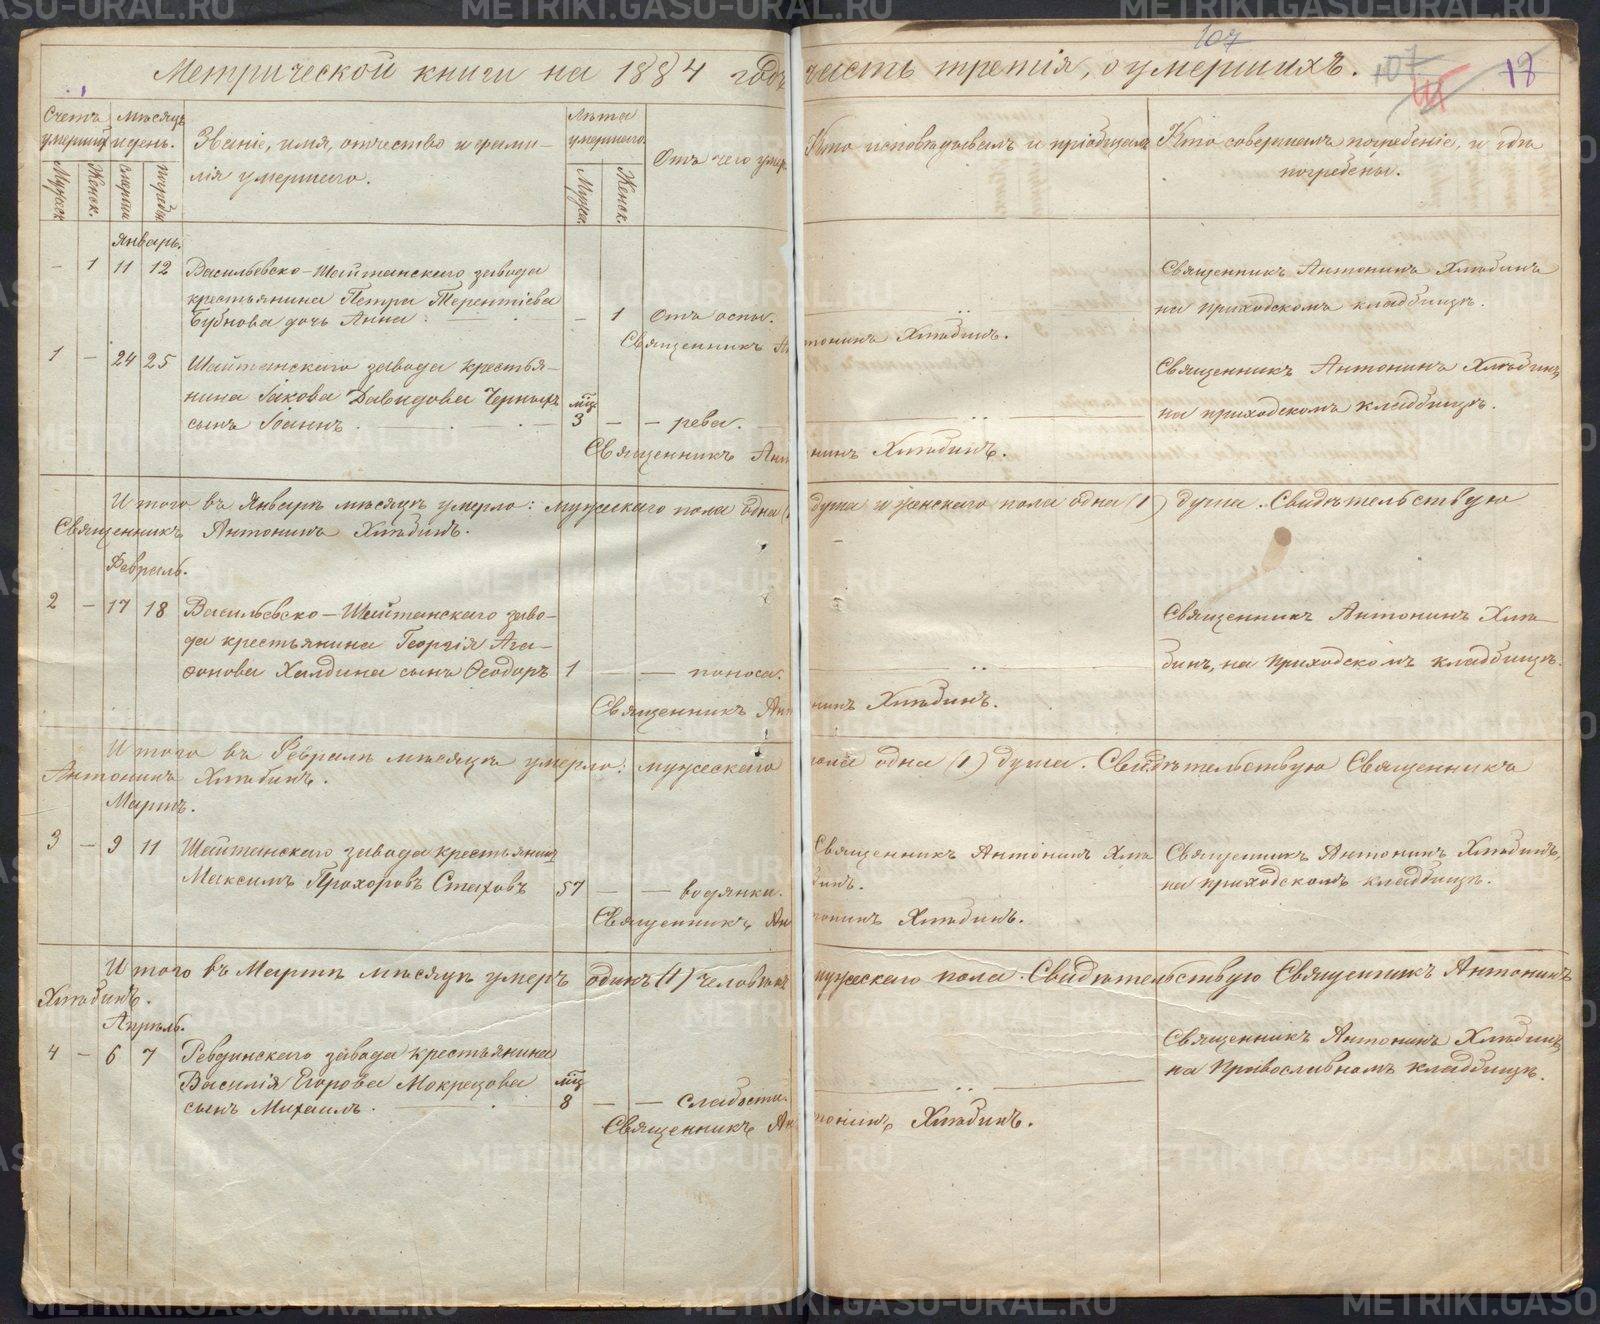 Метрической книги на 1884 годъ часть третія, о умершихъ.
107
107
18
Счетъ умершихъ.
Мужск.
Женск.
Мѣсяцъ и день.
смерти
погребен.
Званіе, имя, отчество и фами-
лія умершаго.
Лѣта умершаго.
Мужск.
Женск.
Отъ чего умер
Кто исповѣдывалъ и пріобщалъ
Кто совершалъ погребеніе, и гдѣ
погребены.
Январь.
– 1 11 12 Васильевско-Шайтанскаго завода
крестьянина Петра Терентіева
Бубнова дочь Анна. – 1 Отъ оспы.
Священникъ Антонинъ Хлѣбинъ
на приходскомъ кладбищѣ.
Священникъ Антонинъ Хлѣбинъ.
1 – 24 25 Шайтанскаго завода крестья-
нина Іакова Давидова Черныхъ мцъ
сынъ Іоаннъ. 3 – – рева.
Священникъ Антонинъ Хлѣбинъ
на приходскомъ кладбищѣ.
Священникъ Антонинъ Хлѣбинъ.
Итого въ Январѣ мѣсяцѣ умерло: мужескаго пола одна (1) душа и женскаго пола одна (1) душа. Свидѣтельствую
Священникъ Антонинъ Хлѣбинъ.
Февраль.
2 – 17 18 Васильевско-Шайтанскаго заво-
да крестьянина Георгія Ага-
фонова Халдина сынъ Ѳеодоръ 1 – – поноса.
Священникъ Антонинъ Хлѣ-
бинъ, на приходскомъ кладбищѣ.
Священникъ Антонинъ Хлѣбинъ.
Итого въ Февралѣ мѣсяцѣ умерло: мужескаго пола одна (1) душа. Свидѣтельствую Священникъ
Антонинъ Хлѣбинъ.
Мартъ.
3 – 9 11 Шайтанскаго завода крестьянинъ
Максимъ Прохоровъ Стаховъ 57 – – водянки.
Священникъ Антонинъ Хлѣ
бинъ.
Священникъ Антонинъ Хлѣбинъ,
на приходскомъ кладбищѣ.
Священникъ Антонинъ Хлѣбинъ.
Итого въ Мартѣ мѣсяцѣ умеръ одинъ (1) человѣкъ мужескаго пола. Свидѣтельствую Священникъ Антонинъ
Хлѣбинъ.
Апрѣль.
4 – 6 7 Ревдинскаго завода крестьянина
Василія Егорова Мокрецова мцъ
сынъ Михаилъ. 8 – – слабости.
Священникъ Антонинъ Хлѣбинъ
на Православномъ кладбищѣ.
Священникъ Антонинъ Хлѣбинъ.
METRIKI.GASO-URAL.RU